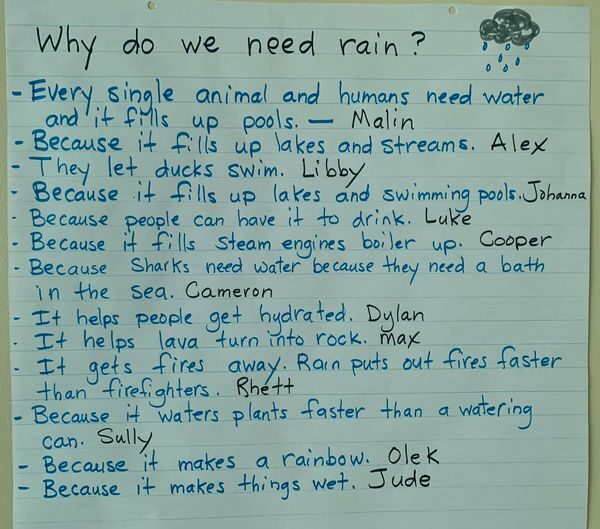 Why do we need rain?
- Every single animal and humans need water
and it fills up pools. — Malin
- Because it fills up lakes and streams. Alex
- They let ducks swim. Libby
- Because it fills up lakes and swimming pools. Johanna
- Because people can have it to drink. Luke
- Because it fills steam engines boiler up. Cooper
- Because Sharks need water because they need a bath
in the sea. Cameron
- It helps people get hydrated. Dylan
- It helps lava turn into rock. max
- It gets fires away. Rain puts out fires faster
than firefighters. Rhett
- Because it waters plants faster than a watering
can. Sully
- Because it makes a rainbow. Olek
- Because it makes things wet. Jude